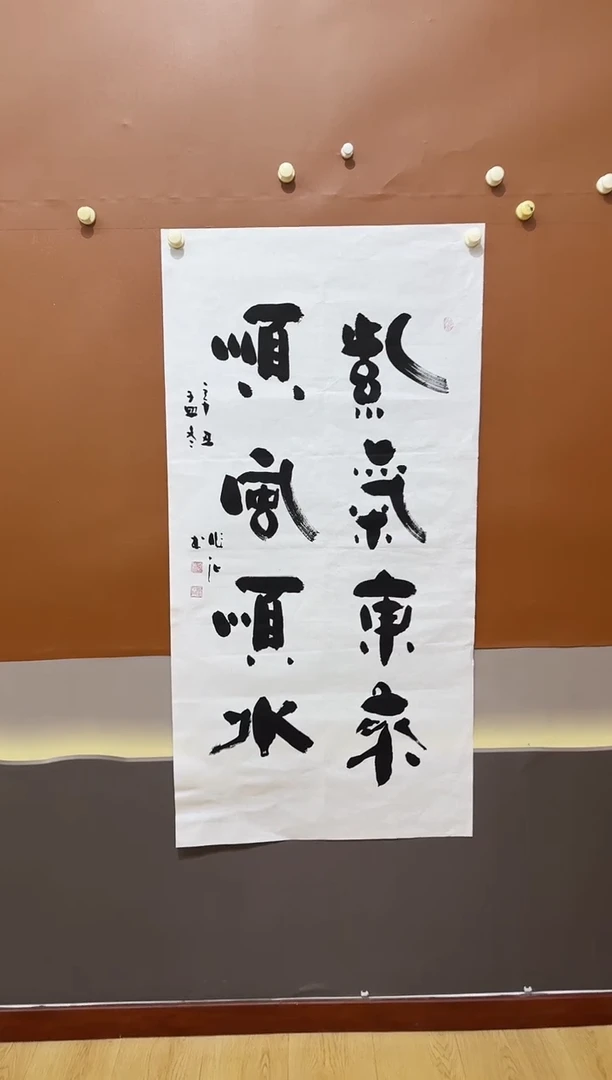 紫氣東來
順風順水
辛丑
孟冬